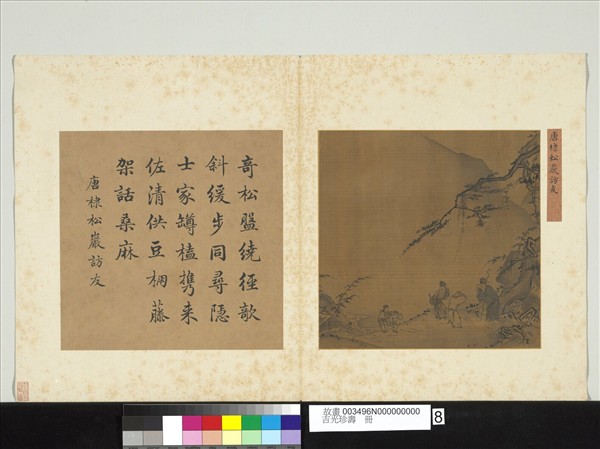 唐棣松巖訪友
奇松盤繞徑欹
斜緩步同尋隱
士家罇榼携来
佐清供豆棚藤
架話桑麻
唐棣松巖訪友
故畫 003496N000000000
吉光珍壽 冊
8